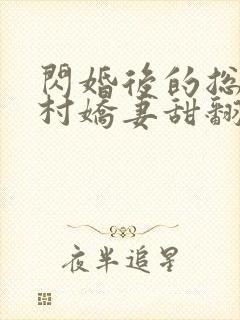 閃婚後的总
村嬌妻甜翻
夜半追星